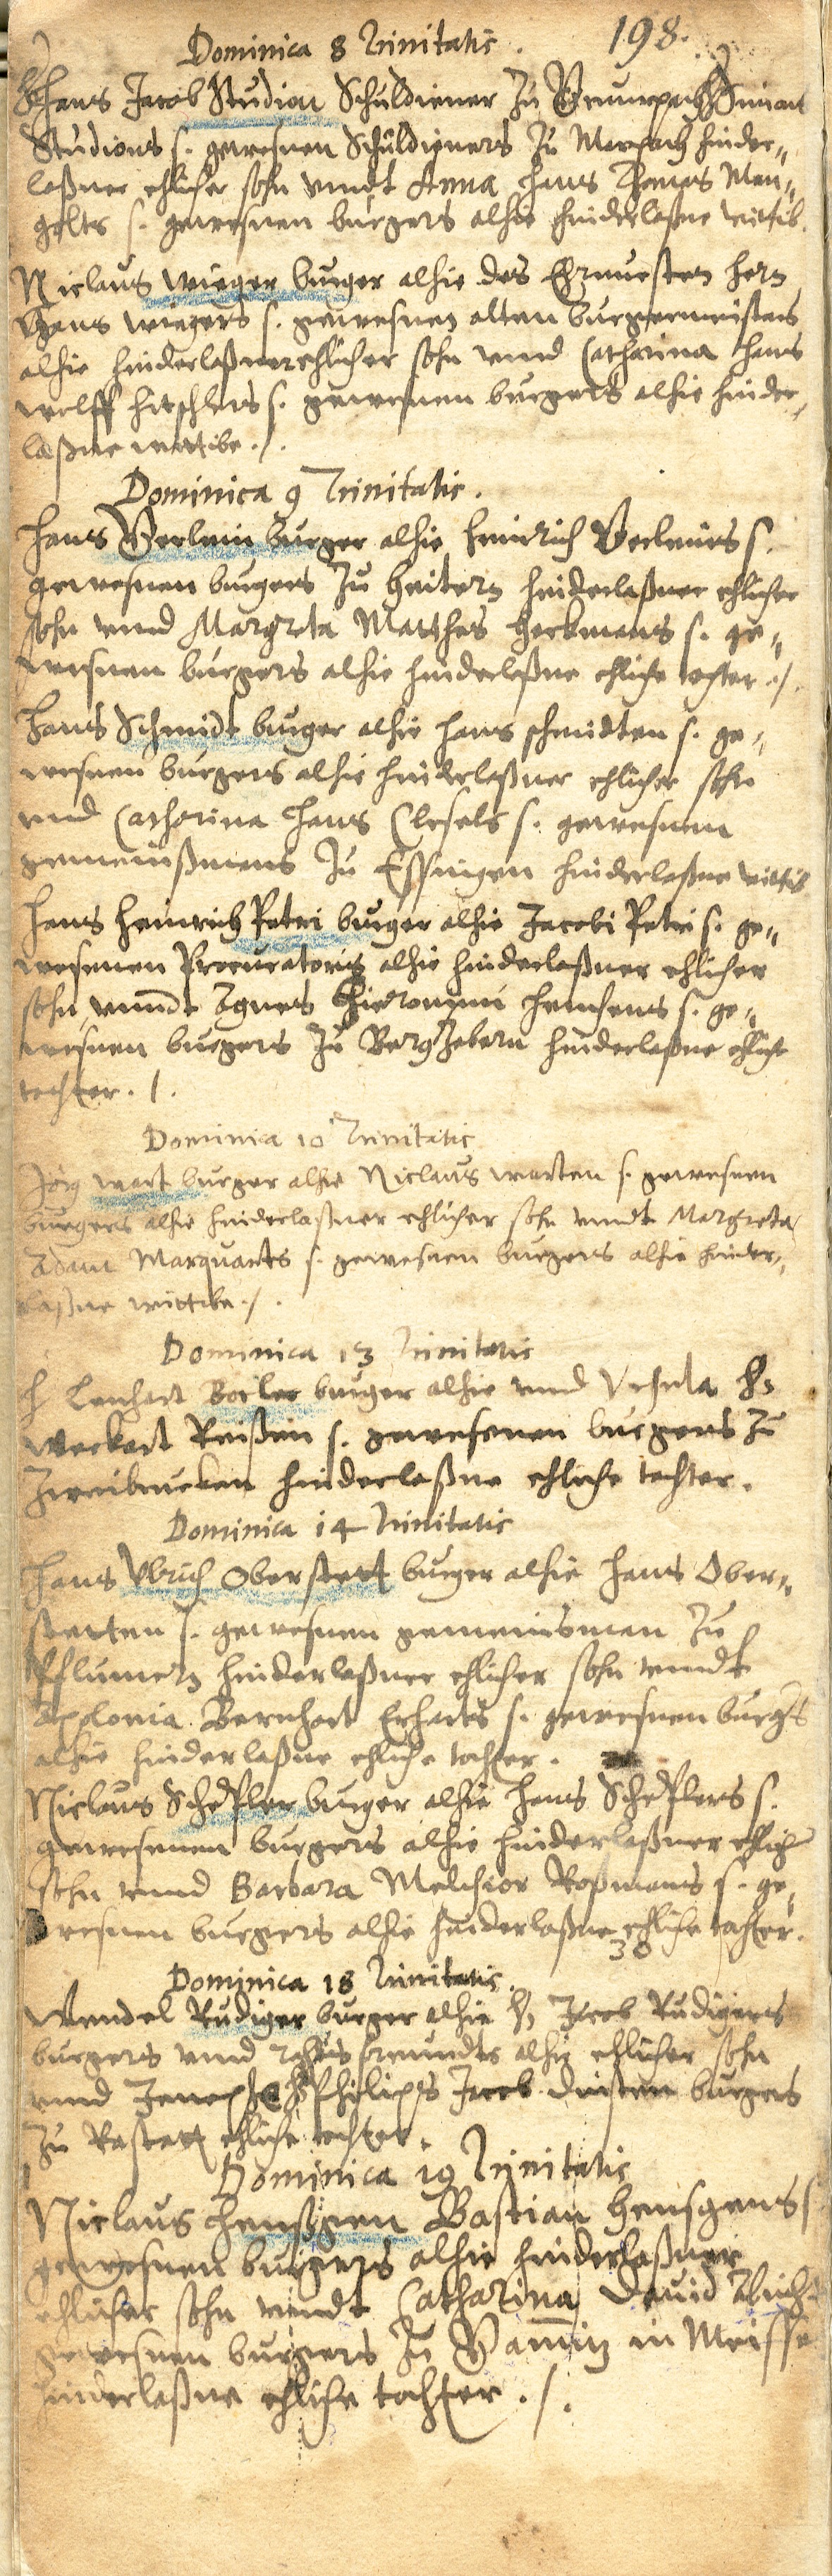 Dominica 8 Trinitatis. 198.
Hans Jacob Studion Schuldiener zu
Studions s. gewesnen Schuldieners zu Marpach hinder„
laßner ehlicher sohn vnndt Anna Hans Thomas Man„
golts s. gewesnen burgers alhie hinderlaßne wittib.
Niclaus Wieger burger alhie des Ehrnuesten hern
Hans Wiegers s. gewesnen alten burgermeisters
alhie hinderlaßner ehlicher sohn vnnd Catharina Hans
Wolff s. gewesnen burgers alhie hinder„
laßne wittibe ./.
Dominica 9 Trinitatis.
Hans burger alhie Heinrich s.
gewesnen burgers zu hinderlaßner ehlicher
sohn vnnd Margreta Matthes Heckmans s. ge„
wesnen burgers alhie hinderlaßne ehliche tochter ./.
Hans Schmidt burger alhie Hans Schmidten s. ge„
wesnen burgers alhie hinderlaßner ehlicher sohn
vnd Catharina Hans Clesels s. gewesnen
gemeinßmans zu Essingen hinderlaßne wittib
Hans Heinrich Petri burger alhie Jacobi Petri s. ge„
wesenen Procuratoris alhie hinderlaßner ehlicher
sohn vnndt Agnes Hieronimi s. ge„
wesnen burgers zu BergZabern hinderlaßne ehliche
tochter . / .
Dominica 10 Trinitatis
Jörg Wart burger alhie Niclaus Warten s. gewesnen
burgers alhie hinderlaßner ehlicher sohn vnndt Margreta
Adam Marquarts s. gewesnen burgers alhie hinder„
laßne wittibe ./.
Dominica 13 Trinitatis
H Lenhart burger alhie vnnd Vrsula H
s. gewesenen burgers zu
Zweibrucken hinderlaßne ehliche tochter.
Dominica 14 Trinitatis
Hans Vlrich Oberstett burger alhie Hans Ober„
stetten s. gewesnen gemeinsman zu
Pflumern hinderlaßner ehlicher sohn vnndt
Apolonia Bernhart Erharts s. gewesnen burgers
alhie hinderlaßne ehliche tochter.
Niclaus Schefler burger alhie Hans Scheflers s.
gewesenen burgers alhie hinderlaßner ehlicher
sohn vnnd Barbara Melchior Roßmans s. ge„
wesnen burgers alhie hinderlaßne ehliche tochter.
30
Dominica 18 Trinitatis.
Wendel Rudiger burger alhie H Jacob Rudigers
burgers vnnd alhie ehlicher sohn
vnnd H Philips Jacob burgers
zu Rastatt ehliche tochter.
Dominica 19 Trinitatis
Niclaus Henßgen Bastian Hensgens s
gewesnen burgers alhie hinderlaßner
ehlicher sohn vnndt Catharina Dauid
gewesnen burgers zu in Meissen
hinderlaßne ehliche tochter ./.